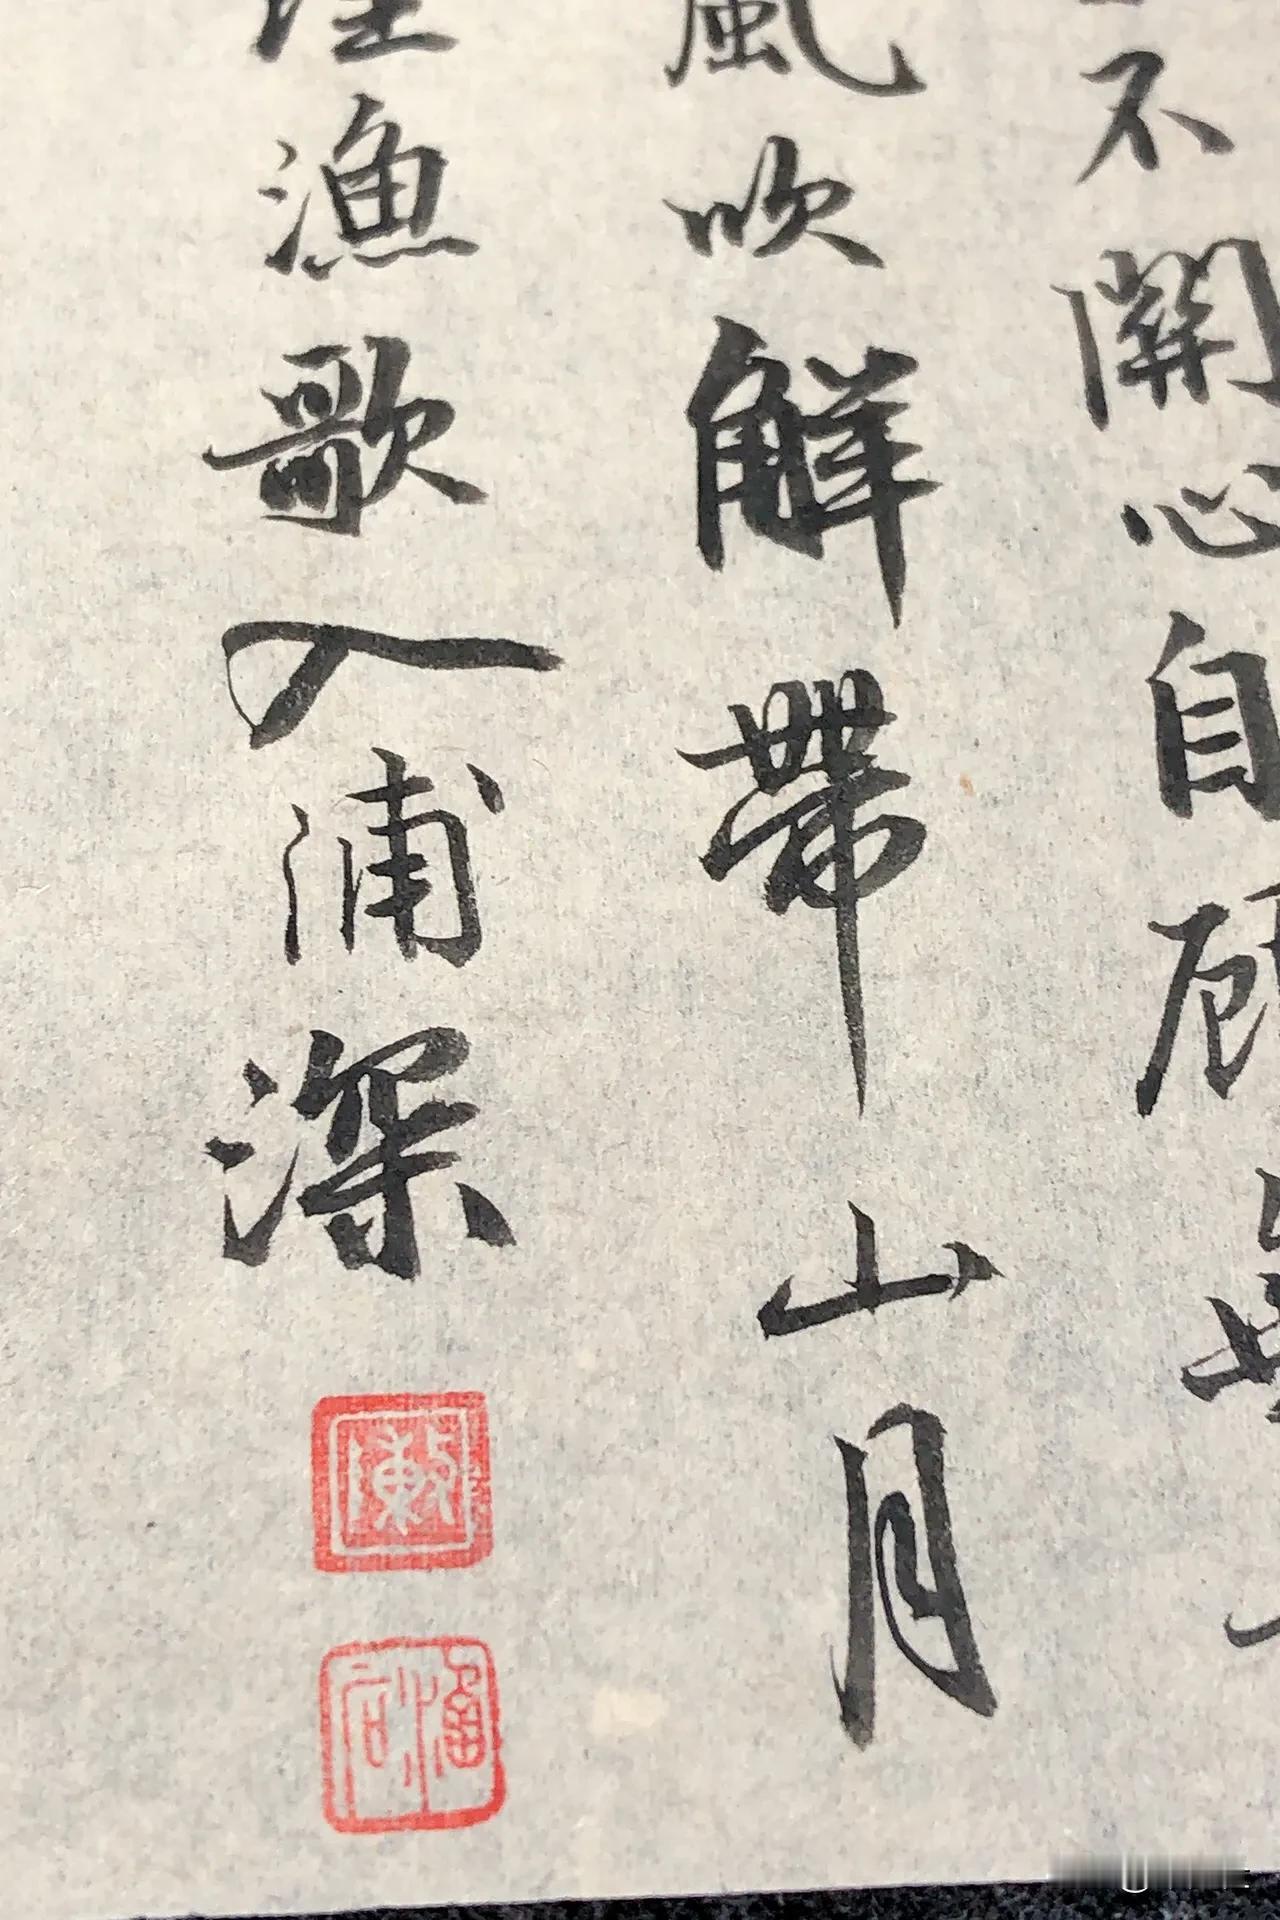 不關心自顧無
風吹解帶山月
理漁歌入浦深